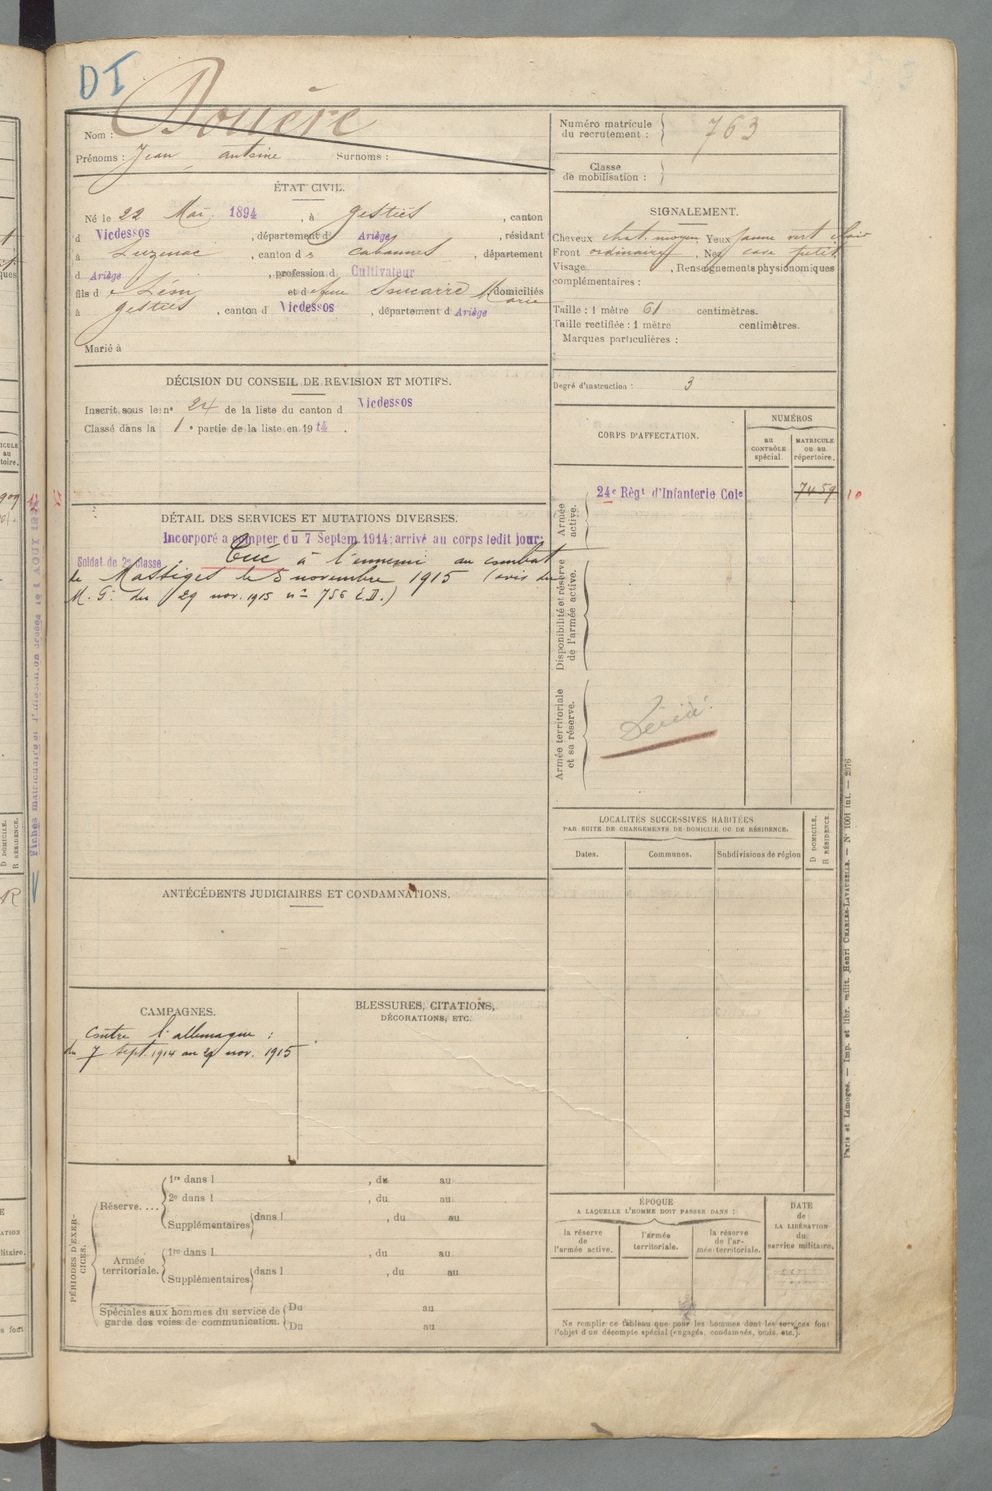 DI
Nom : Douère
Prénoms : Jean antoine Surnoms :
Numéro matricule du recrutement : 763
Classe de mobilisation :
ÉTAT CIVIL.
Né le 22 Mai 1894, à gestiès, canton
d Vicdessos, département d' Ariège, résidant
à Luzenac, canton d s cabannes, département
d Ariège, profession d Cultivateur
fils d e et d e feu Marie domiciliés
à gestiès, canton d Vicdessos, département d Ariège
Marié à
SIGNALEMENT.
Cheveux chat. moyen Yeux jaune vert clair
Front ordinaire, Nez cave petit
Visage, Renseignements physionomiques
complémentaires :
Taille : 1 mètre 61 centimètres.
Taille rectifiée : 1 mètre centimètres.
Marques particulières :
Degré d'instruction : 3
DÉCISION DU CONSEIL DE REVISION ET MOTIFS.
Inscrit sous le nº 24 de la liste du canton d Vicdessos
Classé dans la 1 e partie de la liste en 1914.
CORPS D'AFFECTATION.
NUMÉROS
AU CONTRÔLE spécial.
MATRICULE OU AU répertoire.
Armée active.
24e Régt d'Infanterie Cole
7459
10
Disponibilité et réserve de l'armée active.
Armée territoriale et sa réserve.
Décédé
DÉTAIL DES SERVICES ET MUTATIONS DIVERSES.
Incorporé a compter du 7 Septem. 1914; arrivé au corps ledit jour;
Soldat de 2e classe. Tué à l'ennemi au combat
de Massiges le 5 novembre 1915 (avis du
M. G. du 29 nov. 1915 nº 756 E.D.)
LOCALITÉS SUCCESSIVES HABITÉES
PAR SUITE DE CHANGEMENTS DE DOMICILE OU DE RÉSIDENCE.
Dates.
Communes.
Subdivisions de région
D DOMICILE.
R RÉSIDENCE.
ANTÉCÉDENTS JUDICIAIRES ET CONDAMNATIONS.
CAMPAGNES.
contre l'allemagne :
du 7 sept. 1914 au 29 nov. 1915
BLESSURES, CITATIONS,
DÉCORATIONS, ETC.
PÉRIODES D'EXERCICES.
Réserve....
1re dans l , du au
2e dans l , du au
Supplémentaires dans l , du au
Armée territoriale.
1re dans l , du au
Supplémentaires dans l , du au
Spéciales aux hommes du service de garde des voies de communication.
Du au
Du au
ÉPOQUE
A LAQUELLE L'HOMME DOIT PASSER DANS :
la réserve de l'armée active.
l'armée territoriale.
la réserve de l'armée territoriale.
DATE de LA LIBÉRATION du service militaire.
Ne remplir ce tableau que pour les hommes dont les services font
l'objet d'un décompte spécial (engagés, condamnés, omis, etc.).
Paris et Limoges. — Imp. et libr. milit. Henri CHARLES-LAVAUZELLE. — Nº 1004 int. — 2076